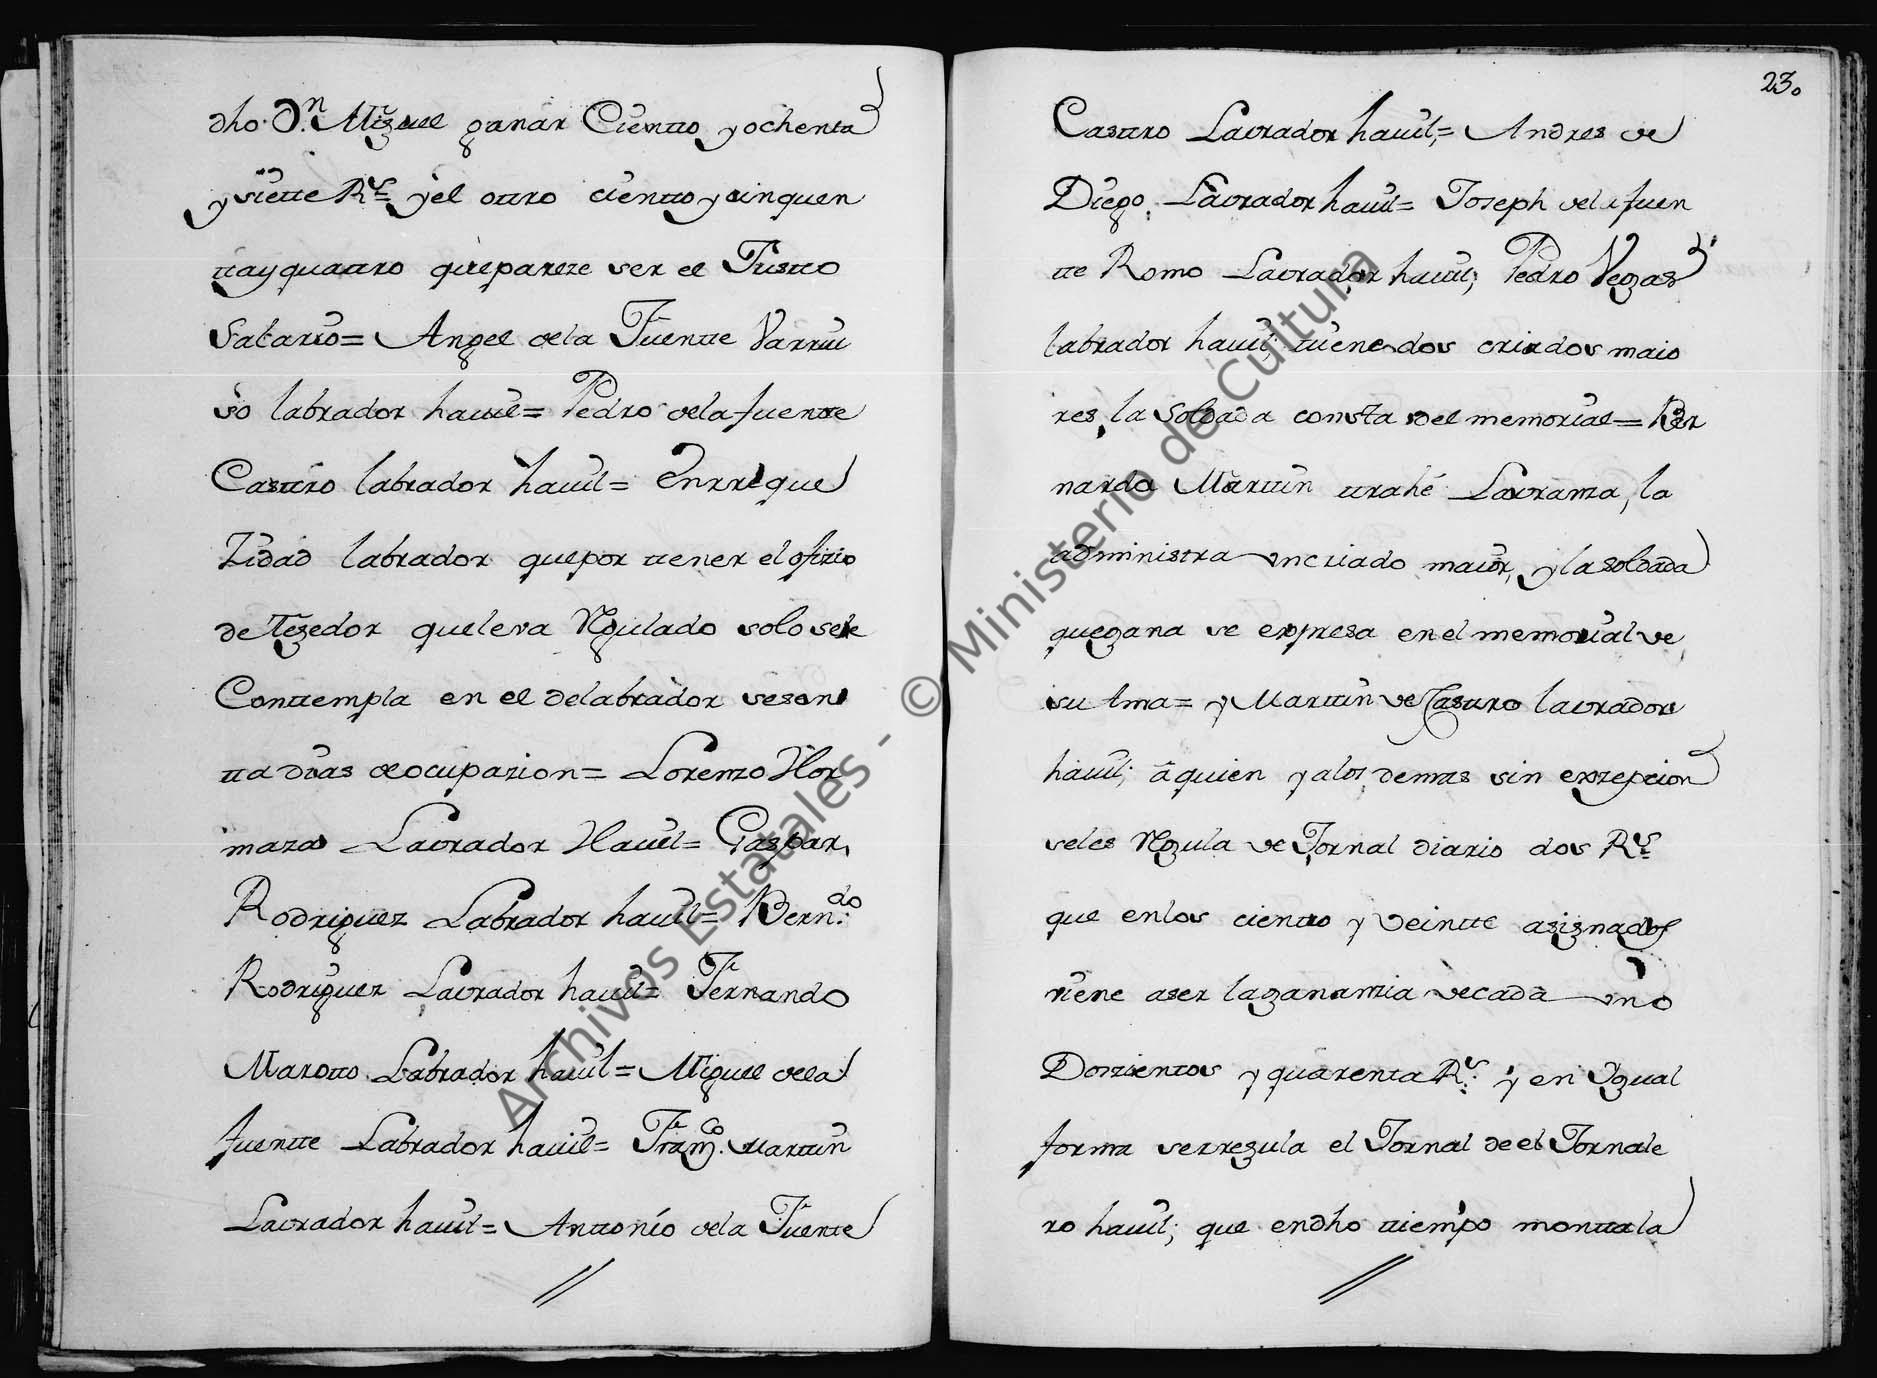 dho. Dn. Miguel ganar Ciento y ochenta
y siette Rs. y el ottro cientto y cinquen
tta y quattro que pareze ser el Justto
Salario = Angel dela Fuentte Varrui
so labrador havil = Pedro dela fuentte
Casttro labrador havil = Enrrique
Zidad labrador que por ttener el ofizio
de Tegedor que leva Rgulado solo sele
Conttempla en el de labrador sesen
tta dias de ocupazion = Lorenzo Hor
maza Lavrador Havil = Gaspar
Rodriguez Labrador havil = Bern.do
Rodriguez Lavrador havil = Fernando
Marotto Labrador havil = Miguel dela
fuentte Labrador havil = Franco. Marttin
Lavrador havil = Anttonio dela Fuente
//
23.
Casttro Lavrador havil; = Andres de
Diego, Lavrador havil = Joseph dela fuen
tte Romo Lavrador havil; Pedro Vegas
labrador havil; ttiene dos criados maio
res, la Soldada consta del memorial = Ber
nardo Marttin ttrahé Lavranza, la
administra un criado maior, y la soldada
que gana se expresa en el memorial de
su Ama = y Marttin de Casttro lavrador
havil; á quien y alos demas sin exzepcion
seles Rgula de Jornal diario dos Rs.
que enlos cientto y veintte asignados
viene aser la ganamzia de cada uno
Doszientos y quarenta Rs. y en Igual
forma se rregula el Jornal de el Jornale
ro havil; que en dho ttiempo montta la
//
Archivos Estatales - © Ministerio de Cultura